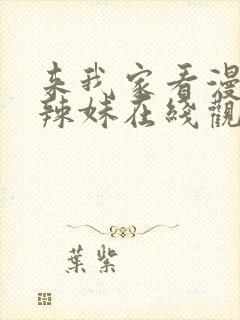 来我家看漫
辣妹在綫觀
葉紫